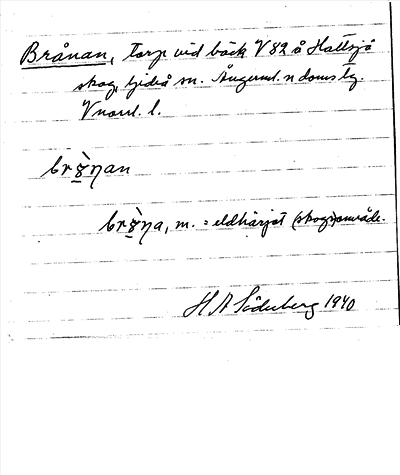 Brånan, torp vid bäck V 82 å Hållsjö
skog, Lidens sn. Ångerml. n doms lg.
Vnorrl. l.
brò̱ŋan
brò̱ŋa, m. = eldhärjat (skogs)område.
H A Söderberg 1940